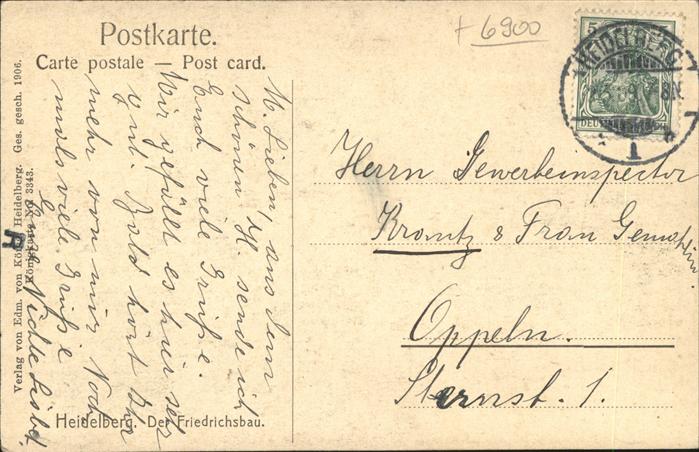 Postkarte.
Carte postale — Post card.
+ 6900
HEIDELBERG
8N.
1
DEUTSCHES REICH
Herrn Gewerbeinspector
Krantz & Frau Gemahlin
Oppeln.
Sternst. 1.
M. Lieben, aus dem
schönen H. sende ich
Euch viele Grüße.
Mir gefällt es hier sehr
gut. Bald hört Ihr
mehr von mir. Noch
mals viele Grüße
Eure Nichte Lisbet.
Verlag von Edm. von König, Heidelberg. Ges. gesch. 1906.
Königkarte No 3343.
Heidelberg. Der Friedrichsbau.